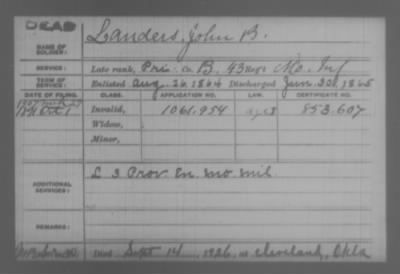 DEAD
Landers, John B.
NAME OF SOLDIER:
SERVICE: Late rank, Priv. Co. B, 43 Reg't Mo. Inf
TERM OF SERVICE: Enlisted Aug 24 1864 Discharged June 30, 1865
DATE OF FILING. CLASS. APPLICATION NO. LAW. CERTIFICATE NO.
1891 Oct 1 Invalid, 1061.954 853.607
Widow,
Minor,
ADDITIONAL SERVICES: L 3 Prov En. Mo Mil
REMARKS:
Died Sept 14, 1926, at Cleveland, Okla